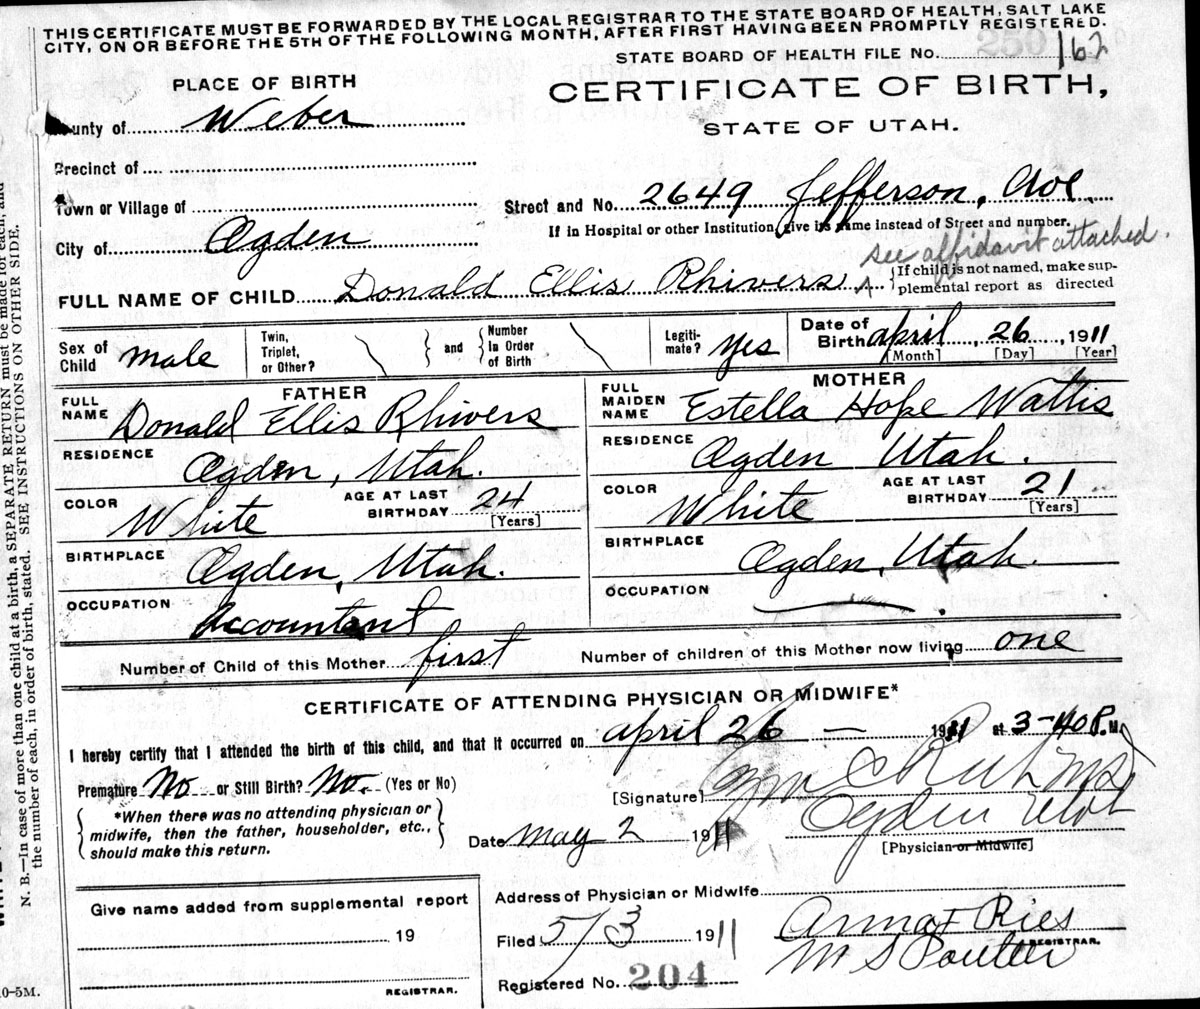 THIS CERTIFICATE MUST BE FORWARDED BY THE LOCAL REGISTRAR TO THE STATE BOARD OF HEALTH, SALT LAKE
CITY, ON OR BEFORE THE 5TH OF THE FOLLOWING MONTH, AFTER FIRST HAVING BEEN PROMPTLY REGISTERED.
250
STATE BOARD OF HEALTH FILE No. 162
PLACE OF BIRTH
CERTIFICATE OF BIRTH,
STATE OF UTAH.
County of Weber
Precinct of
Town or Village of
Street and No. 2649 Jefferson, Ave.
If in Hospital or other Institution, give its name instead of Street and number.
City of Ogden
see affidavit attached.
FULL NAME OF CHILD Donald Ellis Rhivers
If child is not named, make sup-
plemental report as directed
Sex of Child male
Twin, Triplet, or Other?
and
Number In Order of Birth
Legiti-mate? Yes
Date of Birth April, 26, 1911
[Month] [Day] [Year]
FATHER
FULL NAME Donald Ellis Rhivers
RESIDENCE Ogden, Utah.
COLOR White
AGE AT LAST BIRTHDAY 24
[Years]
BIRTHPLACE Ogden, Utah.
OCCUPATION Accountant
MOTHER
FULL MAIDEN NAME Estella Hope Wattis
RESIDENCE Ogden Utah.
COLOR White
AGE AT LAST BIRTHDAY 21
[Years]
BIRTHPLACE Ogden, Utah.
OCCUPATION
Number of Child of this Mother first
Number of children of this Mother now living one
CERTIFICATE OF ATTENDING PHYSICIAN OR MIDWIFE*
I hereby certify that I attended the birth of this child, and that it occurred on April 26 — 1911 at 3-40 P. M.
Premature No or Still Birth? No. (Yes or No)
[Signature]
*When there was no attending physician or
midwife, then the father, householder, etc.,
should make this return.
Date May 2 1911
Ogden Utah
[Physician or Midwife]
Address of Physician or Midwife
Give name added from supplemental report
19
REGISTRAR.
Filed 5/3 1911
Anna F Ries
M S Poulter
REGISTRAR.
Registered No. 204
10-5M.
N. B.—In case of more than one child at a birth, a SEPARATE RETURN must be made for each, and
the number of each, in order of birth, stated. SEE INSTRUCTIONS ON OTHER SIDE.